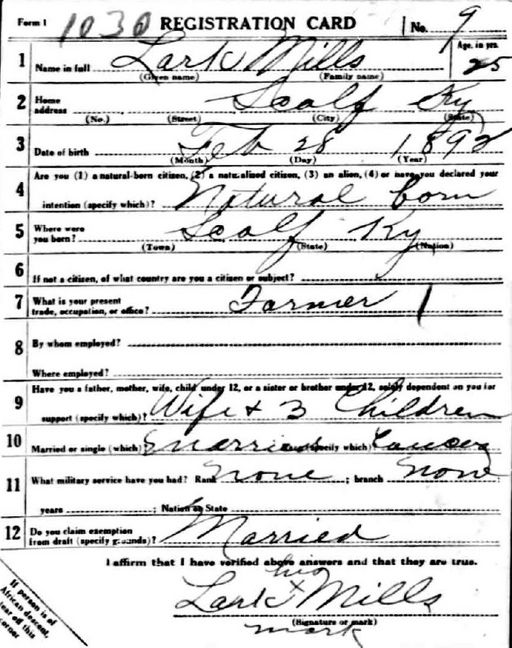 Form 1 1030 REGISTRATION CARD No. 9
1 Name in full Lark Mills Age, in yrs. 25
(Given name) (Family name)
2 Home address Scalf Ky
(No.) (Street) (City) (State)
3 Date of birth Feb 28 1892
(Month) (Day) (Year)
4 Are you (1) a natural-born citizen, (2) a naturalized citizen, (3) an alien, (4) or have you declared your
intention (specify which)? Natural born
5 Where were you born? Scalf Ky
(Town) (State) (Nation)
6 If not a citizen, of what country are you a citizen or subject?
7 What is your present trade, occupation, or office? Farmer
8 By whom employed?
Where employed?
9 Have you a father, mother, wife, child under 12, or a sister or brother under 12, solely dependent on you for
support (specify which)? Wife + 3 Children
10 Married or single (which) Married (specify which)
11 What military service have you had? Rank none ; branch none
years ; Nation or State
12 Do you claim exemption from draft (specify grounds)? Married
I affirm that I have verified above answers and that they are true.
his
Lark x Mills
(Signature or mark)
mark
If person is of
African descent,
tear off this
corner